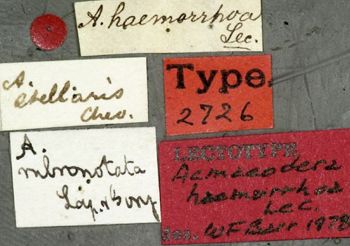 A. haemorrhoa
Lec.
A.
stellaris
Chev.
Type
2726
A.
rubronotata
Lap. & Gory
LECTOTYPE
Acmaeodera
haemorrhoa
Lec.
WF Barr 1978